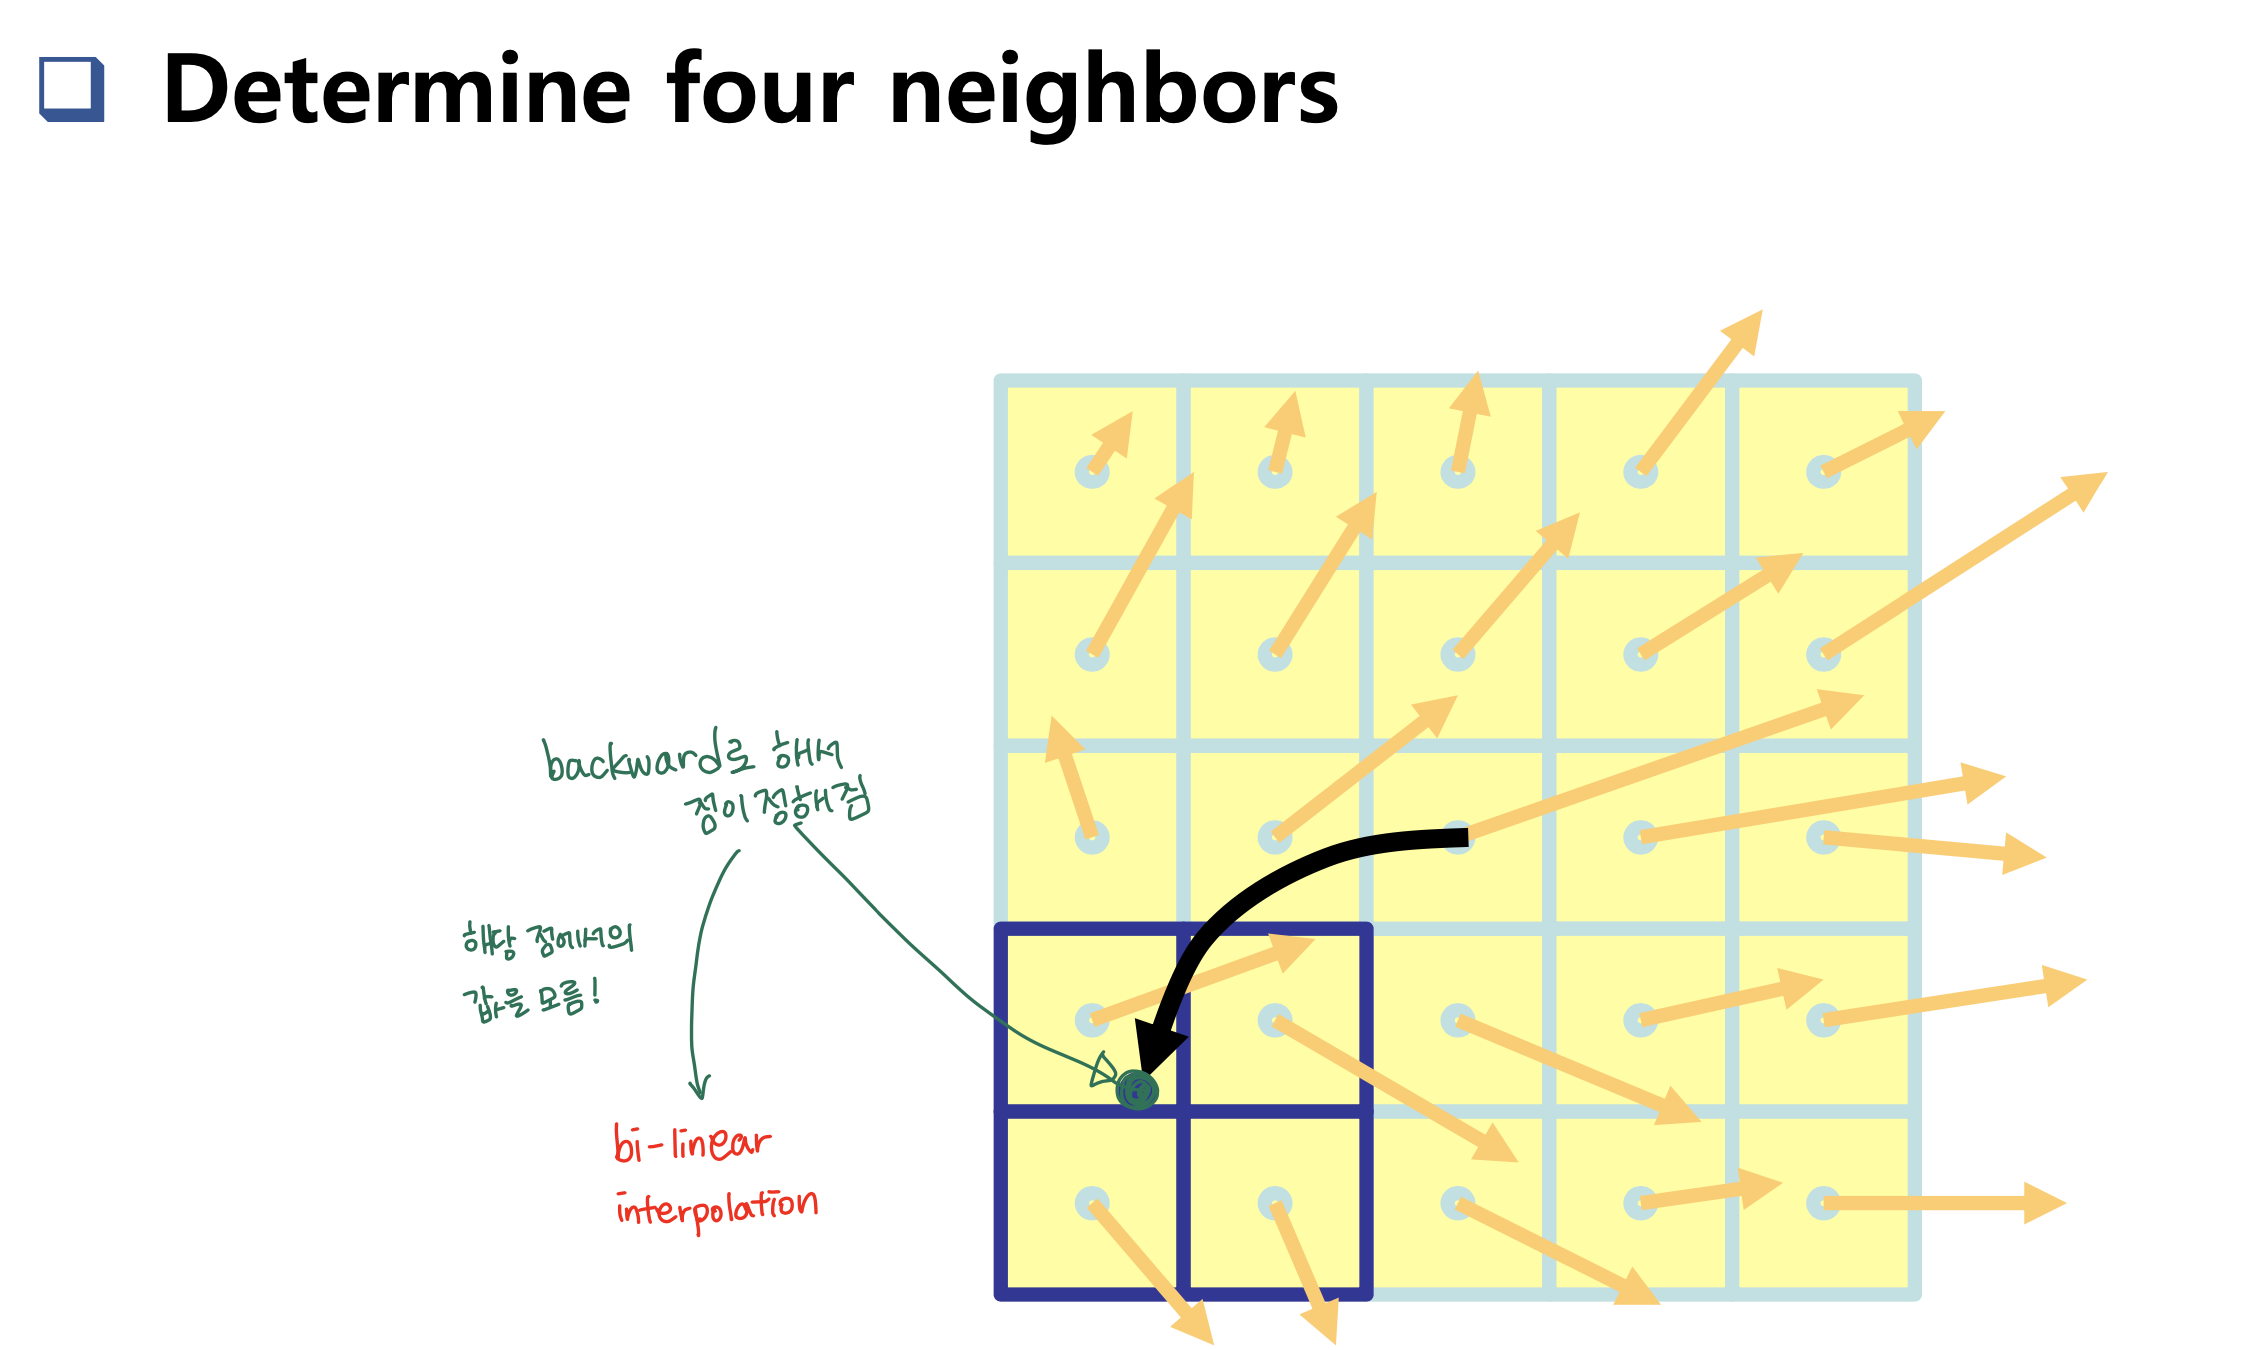 Determine four neighbors
backward로 해서
점이 정해짐
해당 점에서의
값을 모름!
bi-linear
interpolation